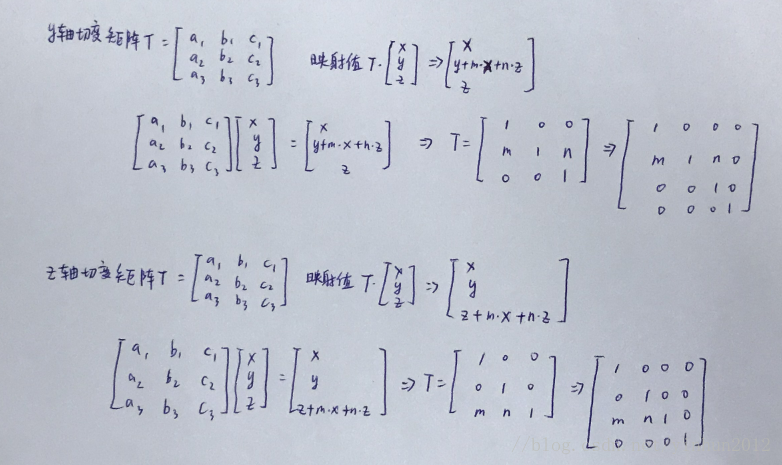 y轴切变矩阵 T = [a₁ b₁ c₁; a₂ b₂ c₂; a₃ b₃ c₃] 映射值 T·[x; y; z] => [x; y+m·x+n·z; z]
[a₁ b₁ c₁; a₂ b₂ c₂; a₃ b₃ c₃][x; y; z] = [x; y+m·x+n·z; z] => T = [1 0 0; m 1 n; 0 0 1] => [1 0 0 0; m 1 n 0; 0 0 1 0; 0 0 0 1]
z轴切变矩阵 T = [a₁ b₁ c₁; a₂ b₂ c₂; a₃ b₃ c₃] 映射值 T·[x; y; z] => [x; y; z+m·x+n·z]
[a₁ b₁ c₁; a₂ b₂ c₂; a₃ b₃ c₃][x; y; z] = [x; y; z+m·x+n·z] => T = [1 0 0; 0 1 0; m n 1] => [1 0 0 0; 0 1 0 0; m n 1 0; 0 0 0 1]